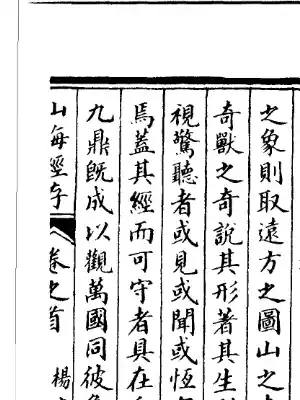 之象則取遠方之圖山之
奇獸之奇說其形著其生
視驚聽者或見或聞或恆
焉蓋其經而可守者具在
九鼎既成以觀萬國同彼
山海經序 卷之首 楊